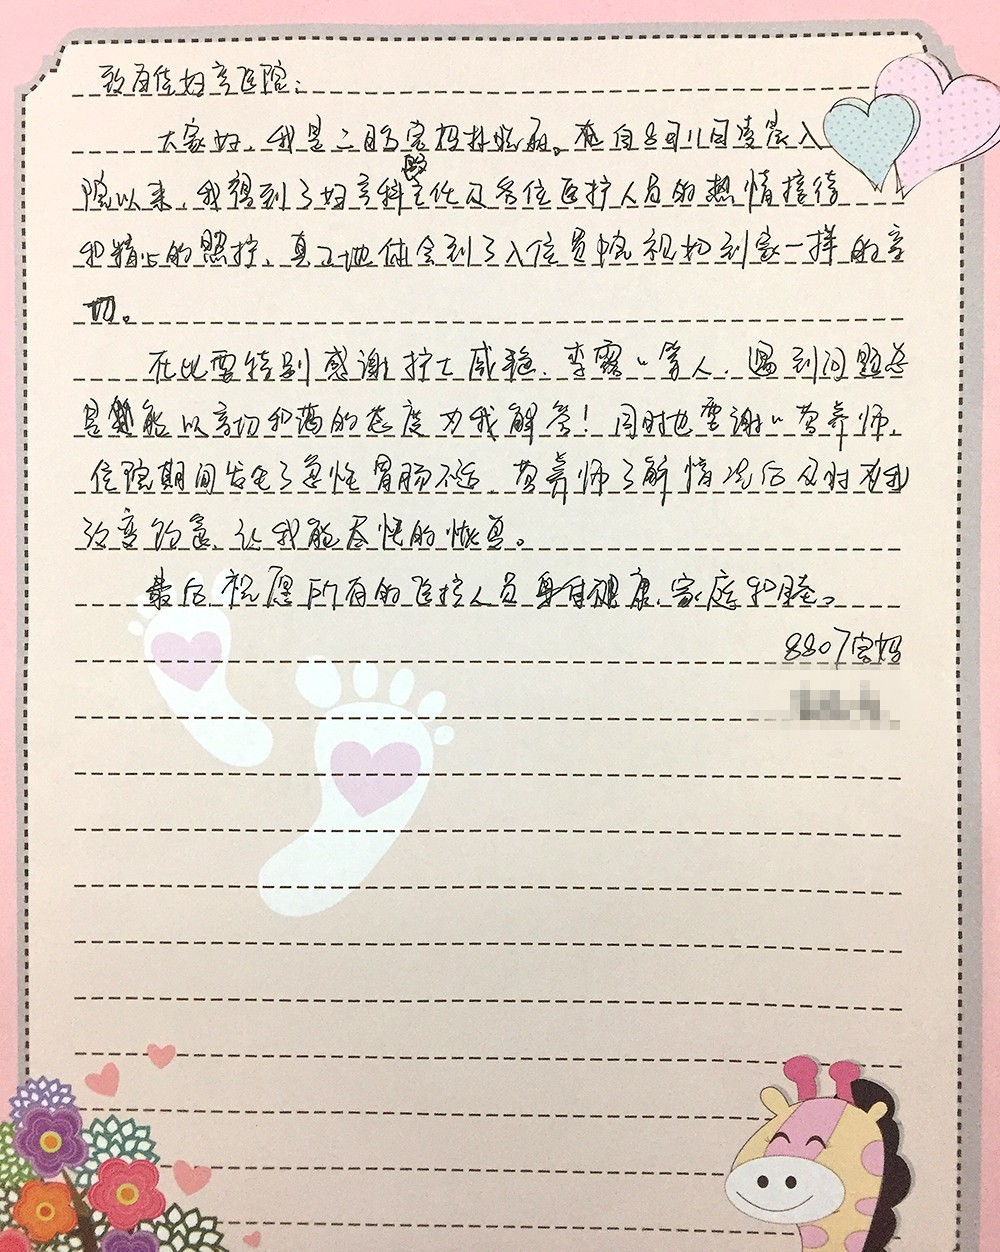 致百佳妇产医院:
大家好,我是二胎宝妈林晓丽。自8月11日凌晨入
院以来,我得到了妇产科主任及各位医护人员的热情接待
和精心的照护,真正地体会到了入住贵院视如到家一样的亲
切。
在此要特别感谢护士戚艳、李露等人,遇到问题总
是能以亲切和蔼的态度为我解答!同时也要谢谢营养师,
住院期间发生了急性胃肠不适,营养师了解情况后及时为我
改变饮食,让我能尽快的恢复。
最后祝愿所有的医护人员身体健康,家庭和睦。
8807宝妈